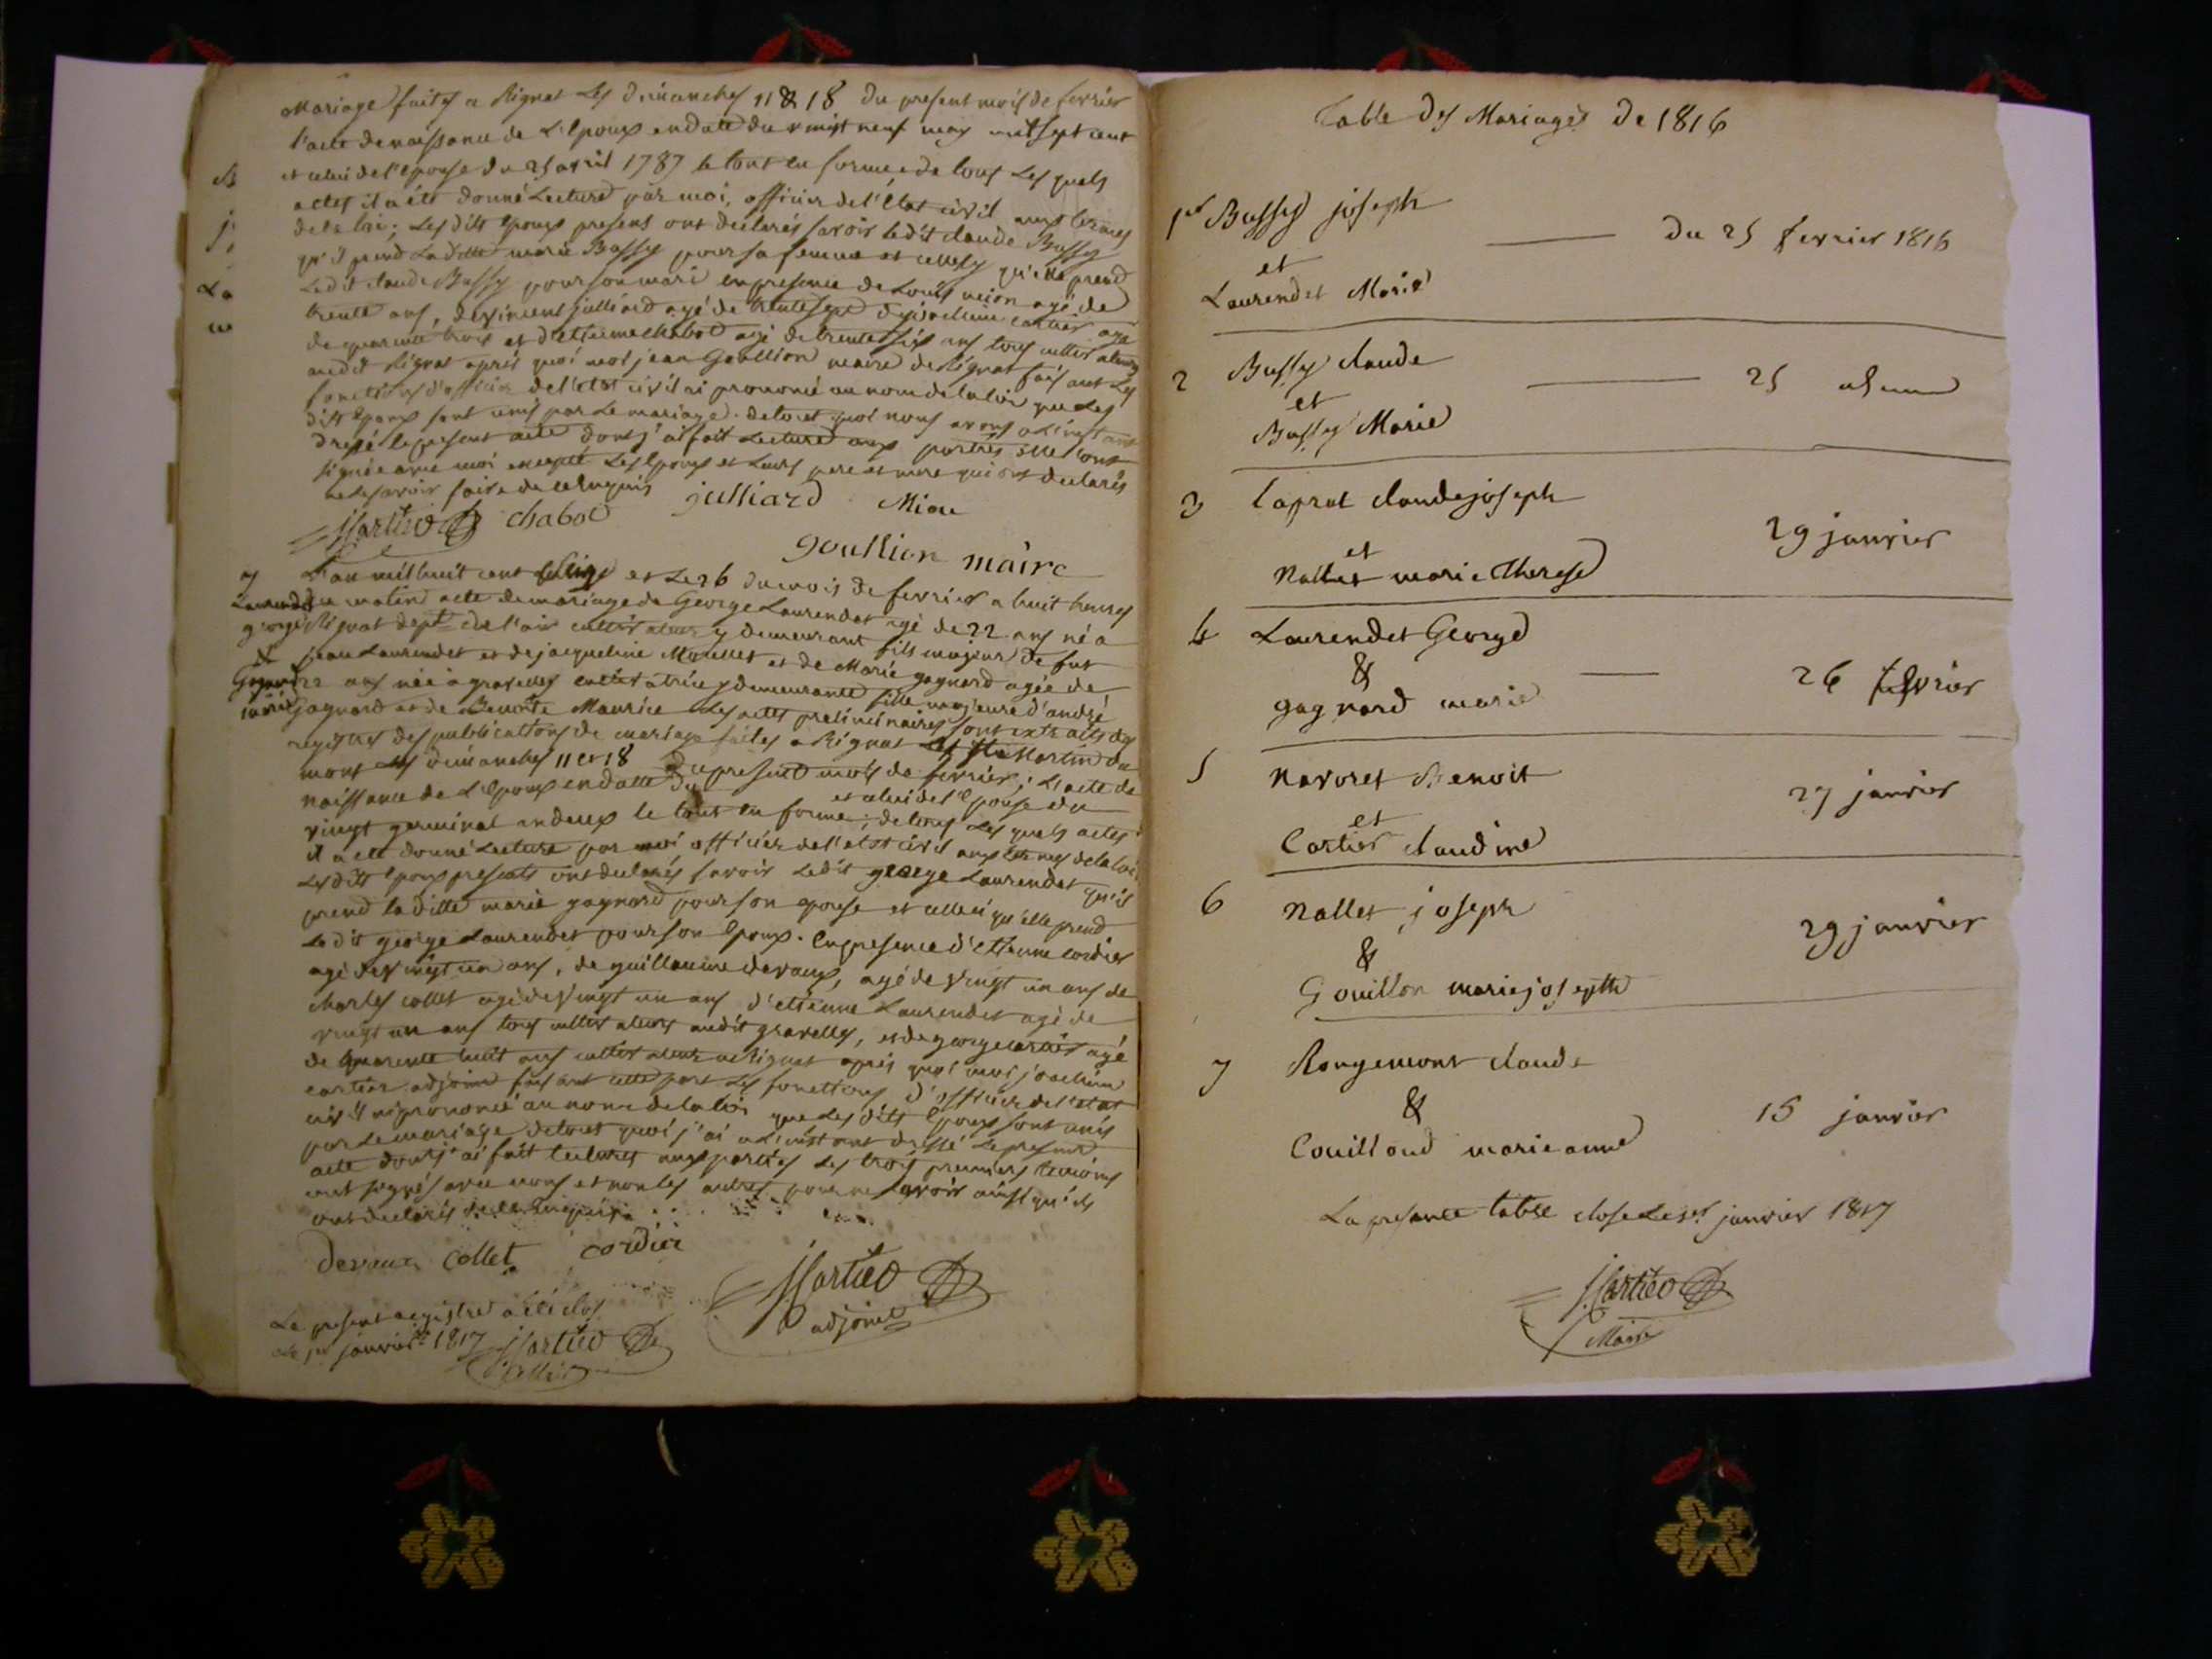 Mariage faites a Rignat Les dimanches 11 & 18 du present mois de fevrier
l'acte de naissance de L'epoux en date du vingt neuf may mil sept cent
et celui de l'epouse du 25 avril 1787 le tout en forme, de tous Les quels
actes il a été donné Lecture par moi, officier de l'Etat civil aux termes
de la loi; Les dits epoux presens ont declarés savoir le dit claude Bussy
qu'il prend La ditte marie Bussy pour sa femme et celle cy qu'elle prend
Le dit claude Bussy pour son mari en presence de Louis agé de
trente ans, de vincent julliard agé de trente sept de joachim cartier agé
de quarante trois et d'ettienne chabot agé de trente six ans tous cultivateurs
audit Rignat après quoi moi jean Goullion maire de Rignat faisant Les
fonctions d'officier de l'etat civil ai prononcé au nom de la loi que Les
dits epoux sont unis par Le mariage. de tout quoi nous avons a L'instant
dressé le present acte dont j'ai fait Lecture aux parties elle ont
signée avec moi excepté Les epoux et Leurs pere et mere qui ont declarés
ne le savoir faire de ce enquis
chabot julliard
goullion maire
7 L'an mil huit cent seize et Le 26 du mois de fevrier a huit heures
Laurendet du matin acte de mariage de George Laurendet agé de 22 ans né a
george Rignat dept de l'ain cultivateur y demeurant fils majeur de fut
& jean Laurendet et de jacqueline Mouillet et de Marie gagnard agée de
Gagnard 22 ans née a gravelles cultivatrice y demeurante fille majeure d'andré
marie gagnard et de Benoite Maurice Les actes preliminaires sont extraits des
registres des publications de mariage faites a Rignat St Martin du
mont les dimanches 11 et 18 du present mois de fevrier; L'acte de
naissance de L'epoux en datte du et celui de l'epouse du
vingt germinal an deux le tout en forme; de tous Les quels actes
il a été donné Lecture par moi officier de l'etat civil aux termes de la loi
Les dits epoux presents ont declarés savoir Ledit george Laurendet qu'il
prend la ditte marie gagnard pour son epouse et celle ci qu'elle prend
Le dit george Laurendet pour son epoux. En presence d'ettienne cordier
agé de vingt un ans, de guillaume devaux, agé de vingt un ans de
charles collet agé de vingt un ans d'etienne Laurendet agé de
vingt un ans tous cultivateurs audit gravelles, et de george cartier agé
de quarante huit ans cultivateur a Rignat après quoi moi joachim
cartier adjoint faisant cette part Les fonctions d'officier de l'etat
civil ai prononcé au nom de la loi que Les dits Epoux sont unis
par Le mariage de tout quoi j'ai a L'instant dressé Le present
acte dont j'ai fait lecture aux parties Les trois premiers temoins
ont signés avec nous et non les autres pour ne Savoir ainsi qu'ils
ont declarés de ce enquis
devaux collet cordier
Cartier
adjoint
Le present registre a été clos
Le 1er janvier 1817 Cartier
Table des Mariages de 1816
1er Bussy joseph
du 25 fevrier 1816
et
Laurendet Marie
2 Bussy claude
25
et
Bussy Marie
3 Caprat claude joseph
29 janvier
et
Nallet marie therese
4 Laurendet George
& 26 fevrier
gagnard marie
5 Navoret Benoit
27 janvier
et
Cartier claudine
6 Nallet joseph
29 janvier
&
Gouillon marie josephte
7 Rougemont claude
& 15 janvier
Couilloud marie anne
La presente table close Le 1er janvier 1817
Cartier
Maire